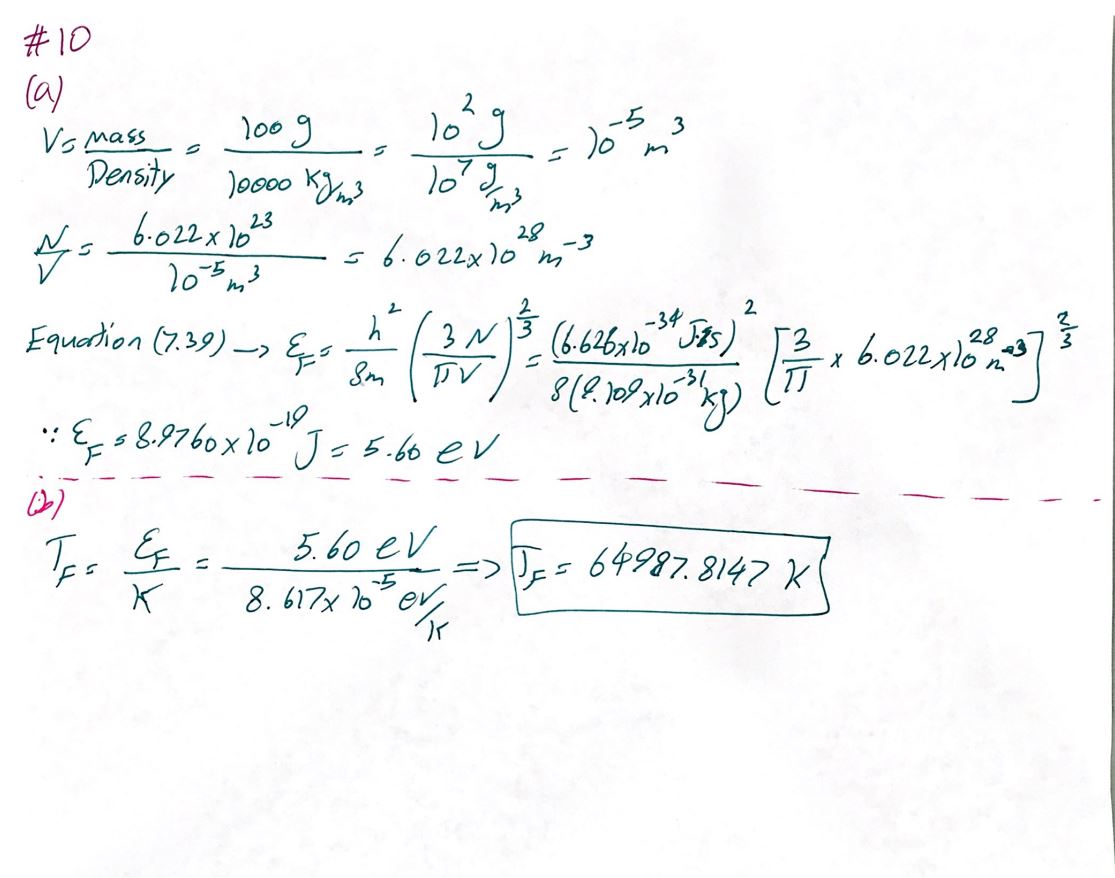 #10
(a)
V = mass/Density = 100 g / 10000 kg/m³ = 10² g / 10⁷ g/m³ = 10⁻⁵ m³
N/V = 6.022 x 10²³ / 10⁻⁵ m³ = 6.022 x 10²⁸ m⁻³
Equation (7.39) → ε_F = h²/8m (3N/πV)^(2/3) = (6.626 x 10⁻³⁴ J·s)² / 8(9.109 x 10⁻³¹ kg) [3/π x 6.022 x 10²⁸ m⁻³]^(2/3)
∵ ε_F = 8.9760 x 10⁻¹⁹ J = 5.60 eV
(b)
T_F = ε_F/K = 5.60 eV / 8.617 x 10⁻⁵ eV/K => T_F = 64987.8147 K